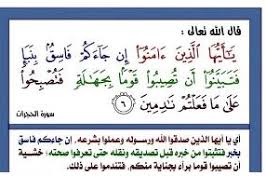 قال الله تعالى :
يَٰٓأَيُّهَا ٱلَّذِينَ ءَامَنُوٓا۟ إِن جَآءَكُمْ فَاسِقٌۢ بِنَبَإٍ
فَتَبَيَّنُوٓا۟ أَن تُصِيبُوا۟ قَوْمًۢا بِجَهَٰلَةٍ فَتُصْبِحُوا۟
عَلَىٰ مَا فَعَلْتُمْ نَٰدِمِينَ ٦
سورة الحجرات
أي يا أيها الذين صدقوا الله ورسوله وعملوا بشرعه، إن جاءكم فاسق
بخبر فتثبتوا من خبره قبل تصديقه ونقله حتى تعرفوا صحته؛ خشية
أن تصيبوا قوما برآء بجناية منكم، فتندموا على ذلك.